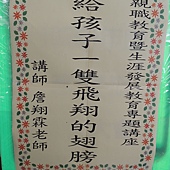 親職教育暨生涯發展教育專題講座
給孩子一雙飛翔的翅膀
講師 詹翔霖老師